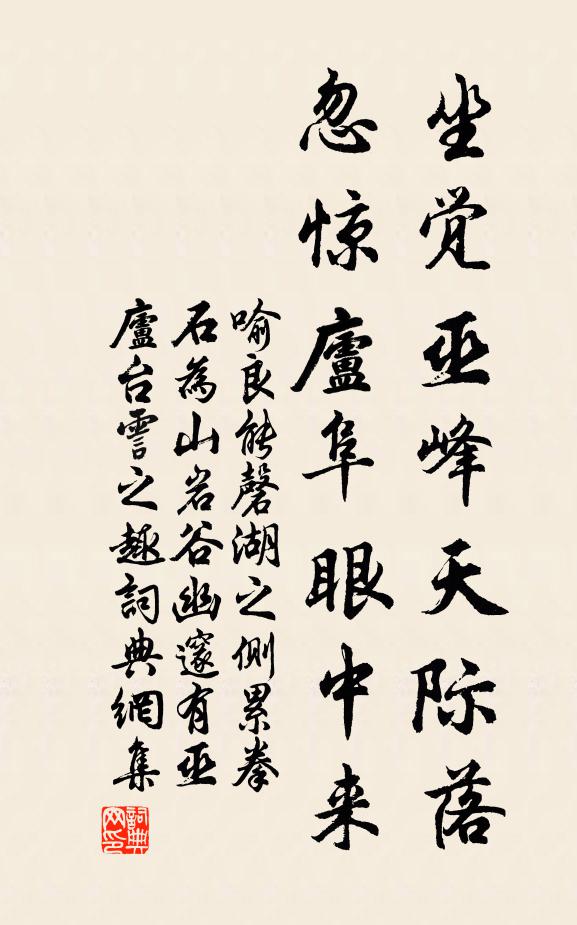 坐觉巫峰天际落
忽惊廬阜眼中来
喻良能磬湖之側累拳
石為山岩谷幽邃有巫
廬台雩之趣詞典網集
詞典网印